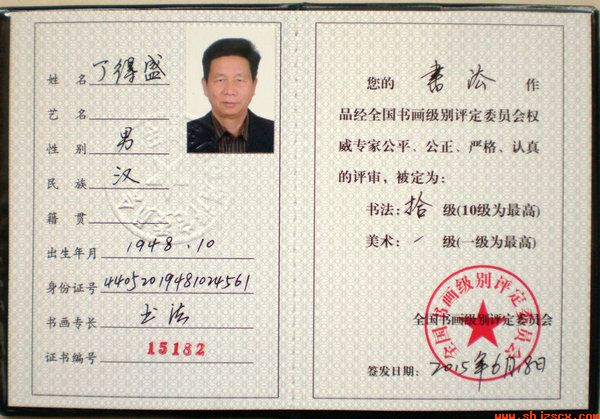 姓名 丁得盛
艺名
性别 男
民族 汉
籍贯
出生年月 1948.10
身份证号 44052019481024561
书画专长 书法
证书编号 15182
您的 书法 作
品经全国书画级别评定委员会权
威专家公平、公正、严格、认真
的评审，被定为：
书法：拾 级(10级为最高)
美术：/ 级(一级为最高)
全国书画级别评定委员会
全国书画级别评定委员会
签发日期：2015年6月18日
www.shjzscx.com